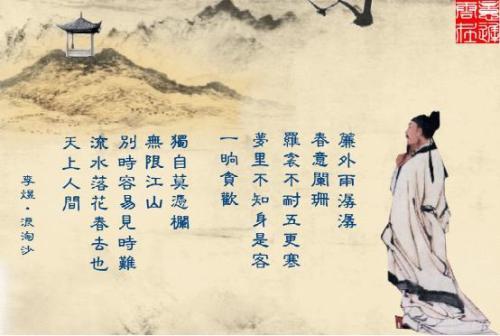 簾外雨潺潺
春意闌珊
羅衾不耐五更寒
夢里不知身是客
一晌貪歡
獨自莫憑欄
無限江山
別時容易見時難
流水落花春去也
天上人間
李煜·浪淘沙